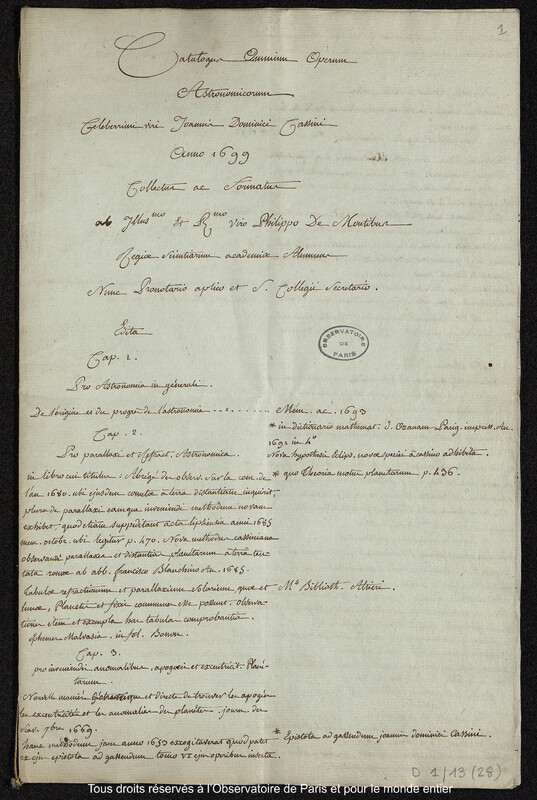 1
Catalogus Omnium Operum
Astronomicorum
Celeberrimi viri Joannis Dominici Cassini
Anno 1699
Collectus ac Formatus
ab Illus.mo Et R.mo viro Philippo De Montibus
Regiæ Scientiarum academiæ Alumnus
Nunc Pronotario aplico et S. Collegii Secretario.
Edita
OBSERVATOIRE DE PARIS
Cap. 1.
Pro Astronomia in generali.
De l'origine et du progrès de l'astronomie ........ Mém. ac. 1693
Cap. 2.
* in dictionario mathemat. d. Ozanam Parig. impress. An.
1691 in 4°
Pro parallaxi et Refract. Astronomica.
Nova hypothesis eclips. novæ speciei à cassino adhibita.
in libro cui titulus : Abrégé des observ. sur la com. de
* quo Theoria motus planetarum p. 436.
l'an 1680. ubi ejusdem cometæ a terra distantiam inquirit,
plura de parallaxi eamque inveniendi methodum novam
exhibet, quod etiam suppeditant acta lipsiensia anni 1685
mens. octobr. ubi legitur p. 470. Nova methodus cassiniana
observandi parallaxes et distantias planetarum a terra ten-
tata romæ ab abb. francisco Blanchino An. 1685.
Tabulæ refractionum et parallaxium solarium, quæ et
Ms Biblioth. Altieri.
lunæ, Planetis et fixis communes esse possunt. observa-
tiones item et exempla has tabulas comprobantia
ephemer Malvasia. in fol. Bonon.
Cap. 3.
pro inveniendis anomalibus, apogæis et excentricit. Plane-
tarum.
Nouvelle manière géométrique et directe de trouver les apogées
les excentricités et les anomalies des planètes. journ. des
sçav. 7bre 1669.
hanc methodum jam anno 1653 excogitaverat quod patet
* Epistola ad gassendum joannis dominici Cassini.
ex ejus epistola ad gassendum tomo VI ejus operibus inserta.
D 1/13 (28)
Tous droits réservés à l'Observatoire de Paris et pour le monde entier